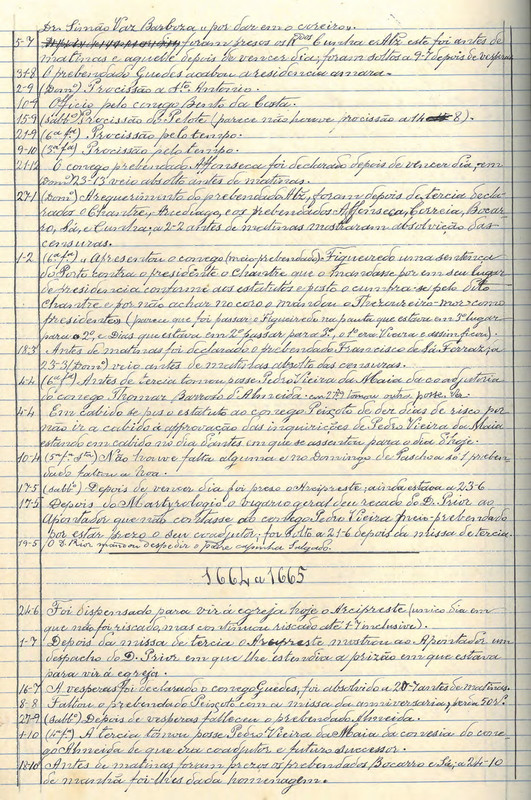 Dr. Simão Vaz Barboza "por dar em o cireiro".
5-7 foram presos os R.dos Cunha e Abz este foi antes de
matinas e aquelle depois de vencer dia; foram soltos a 9-7 depois de vesperas
31-8 O prebendado Guedes acabou a residencia amara.
2-9 (Dom.º) Procissão a S.to Antonio.
10-9 Officio pelo conego Bento da Costa.
15-9 (sabb.º) Procissão do Pelote (parece não houve procissão a 14 8).
21-9 (6ª fª) Procissão pelo tempo.
9-10 (3ª fª) Procissão pelo tempo.
21-12 O conego prebendado Affonseca foi declarado depois de vencer dia, em
Dom.º 23-13 veio absolto antes de matinas.
27-1 (Dom.º) A requerimento do prebendado Abz, foram depois de tercia decla-
rados o Chantre, Arcediago, e os prebendados Affonseca, Correia, Bocar-
ro, Sá, e Cunha: a 2-2 antes de matinas mostraram absolvição das
censuras.
1-2 (6ª fª) "Apresentou o conego (meio prebendado) Figueiredo uma sentença
do Porto contra o presidente o Chantre que o mandasse por em seu lugar
de presidencia conforme aos estatutos e posto o cumpra-se pelo dito
Chantre e por não achar no coro o mandou o Thezoureiro-mor como
presidente" (parece que foi passar o Figueiredo na pauta que estava em 3º lugar
para o 2º, e Dias que estava em 2º passar para 3º, o 1º era Vieira e assim ficou).
18-3 Antes de matinas foi declarado o prebendado Francisco de Sá Ferraz; a
23-3 (Dom.º) veio antes de matinas absolto das censuras.
4-4 (6ª fª) Antes de tercia tomou posse Pedro Vieira da Maia da coadjutoria
do conego Thomaz Barreto d'Almeida. em 27-9 tomou outra posse.
4-4 Em cabido se pus o estatuto ao conego Peixoto de dez dias de risco por
não ir a cabido à approvação das inquirições de Pedro Vieira da Maia
estando em cabido no dia d'antes em que se assentou para o dia d'hoje.
10-4 (5ª fª Stª) Não houve falta alguma e no Domingo de Paschoa só 1 preben-
dado faltou a Noa.
17-5 (sabb.º) Depois de vencer dia foi preso o Arcipreste; ainda estava a 23-6
17-5 Depois do Martyrologio o vigario geral deu recado do D. Prior ao
Apontador que não contasse ao conego Pedro Vieira meio-prebendado
por estar prezo o seu coadjutor; foi solto a 21-6 depois da missa de tercia.
19-5 O D. Prior mandou despedir o padre capinha Salgado.
1664 a 1665
24-6 Foi dispensado para vir à egreja hoje o Arcipreste (unico dia em
que não foi riscado, mas continuou riscado até 1-7 inclusivé).
1-7 Depois da missa de tercia o Arcipreste mostrou ao Apontador um
despacho do D. Prior em que lhe estendia a prizão em que estava
para vir à egreja.
16-7 A vesperas foi declarado o conego Guedes, foi absolvido a 20-7 antes de matinas.
8-8 Faltou o prebendado Peixoto com a missa da anniversaria; perdeu 50 r.
27-9 (sabb.º) Depois de vesperas falleceu o prebendado Almeida.
1-10 (4ª fª) A tercia tomou posse Pedro Vieira da Maia da conesia do cone-
go Almeida de que era coadjutor e futuro successor.
18-10 Antes de matinas foram prezos os prebendados, Bocarro e Sá; a 24-10
de manhã foi-lhes dada homenagem.